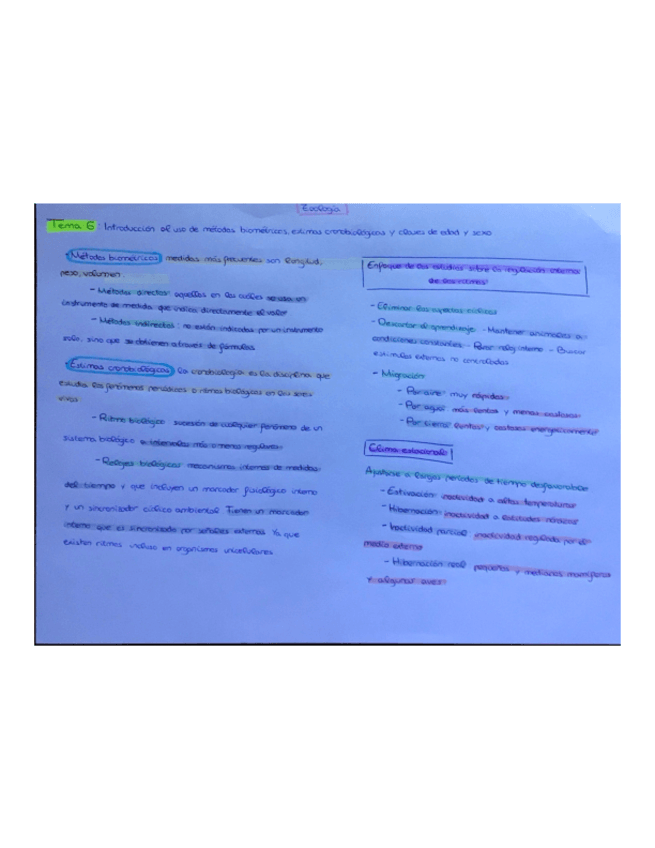 Ecología
Tema 6: Introducción al uso de métodos biométricos, estimas cronobiológicas y clases de edad y sexo
Métodos biométricos medidas más frecuentes son longitud,
peso, volumen
- Métodos directos: aquellos en los cuales se usa un
instrumento de medida que indica directamente el valor
- Métodos indirectos: no están indicados por un instrumento
solo, sino que se obtienen a través de fórmulas
Estimas cronobiológicas la cronobiología es la disciplina que
estudia los fenómenos periódicos o ritmos biológicos en los seres
vivos
- Ritmo biológico sucesión de cualquier fenómeno de un
sistema biológico a intervalos más o menos regulares
- Relojes biológicos mecanismos internos de medidas
del tiempo y que incluyen un marcador fisiológico interno
y un sincronizador cíclico ambiental Tienen un marcador
interno que es sincronizado por señales externas Ya que
existen ritmos incluso en organismos unicelulares
Enfoque de los estudios sobre la regulación interna
de los ritmos
- Eliminar los aspectos cíclicos
- Descartar el aprendizaje - Mantener animales a
condiciones constantes - Parar reloj interno - Buscar
estímulos externos no controlados
- Migración
- Por aire muy rápidas
- Por agua más lentas y menos costosas
- Por tierra lentas y costosas energéticamente
Clima estacional
Ajustarse a largos periodos de tiempo desfavorable
- Estivación inactividad a altas temperaturas
- Hibernación inactividad a latitudes nórdicas
- Inactividad parcial inactividad regulada por el
medio externo
- Hibernación real pequeños y medianos mamíferos
y algunas aves